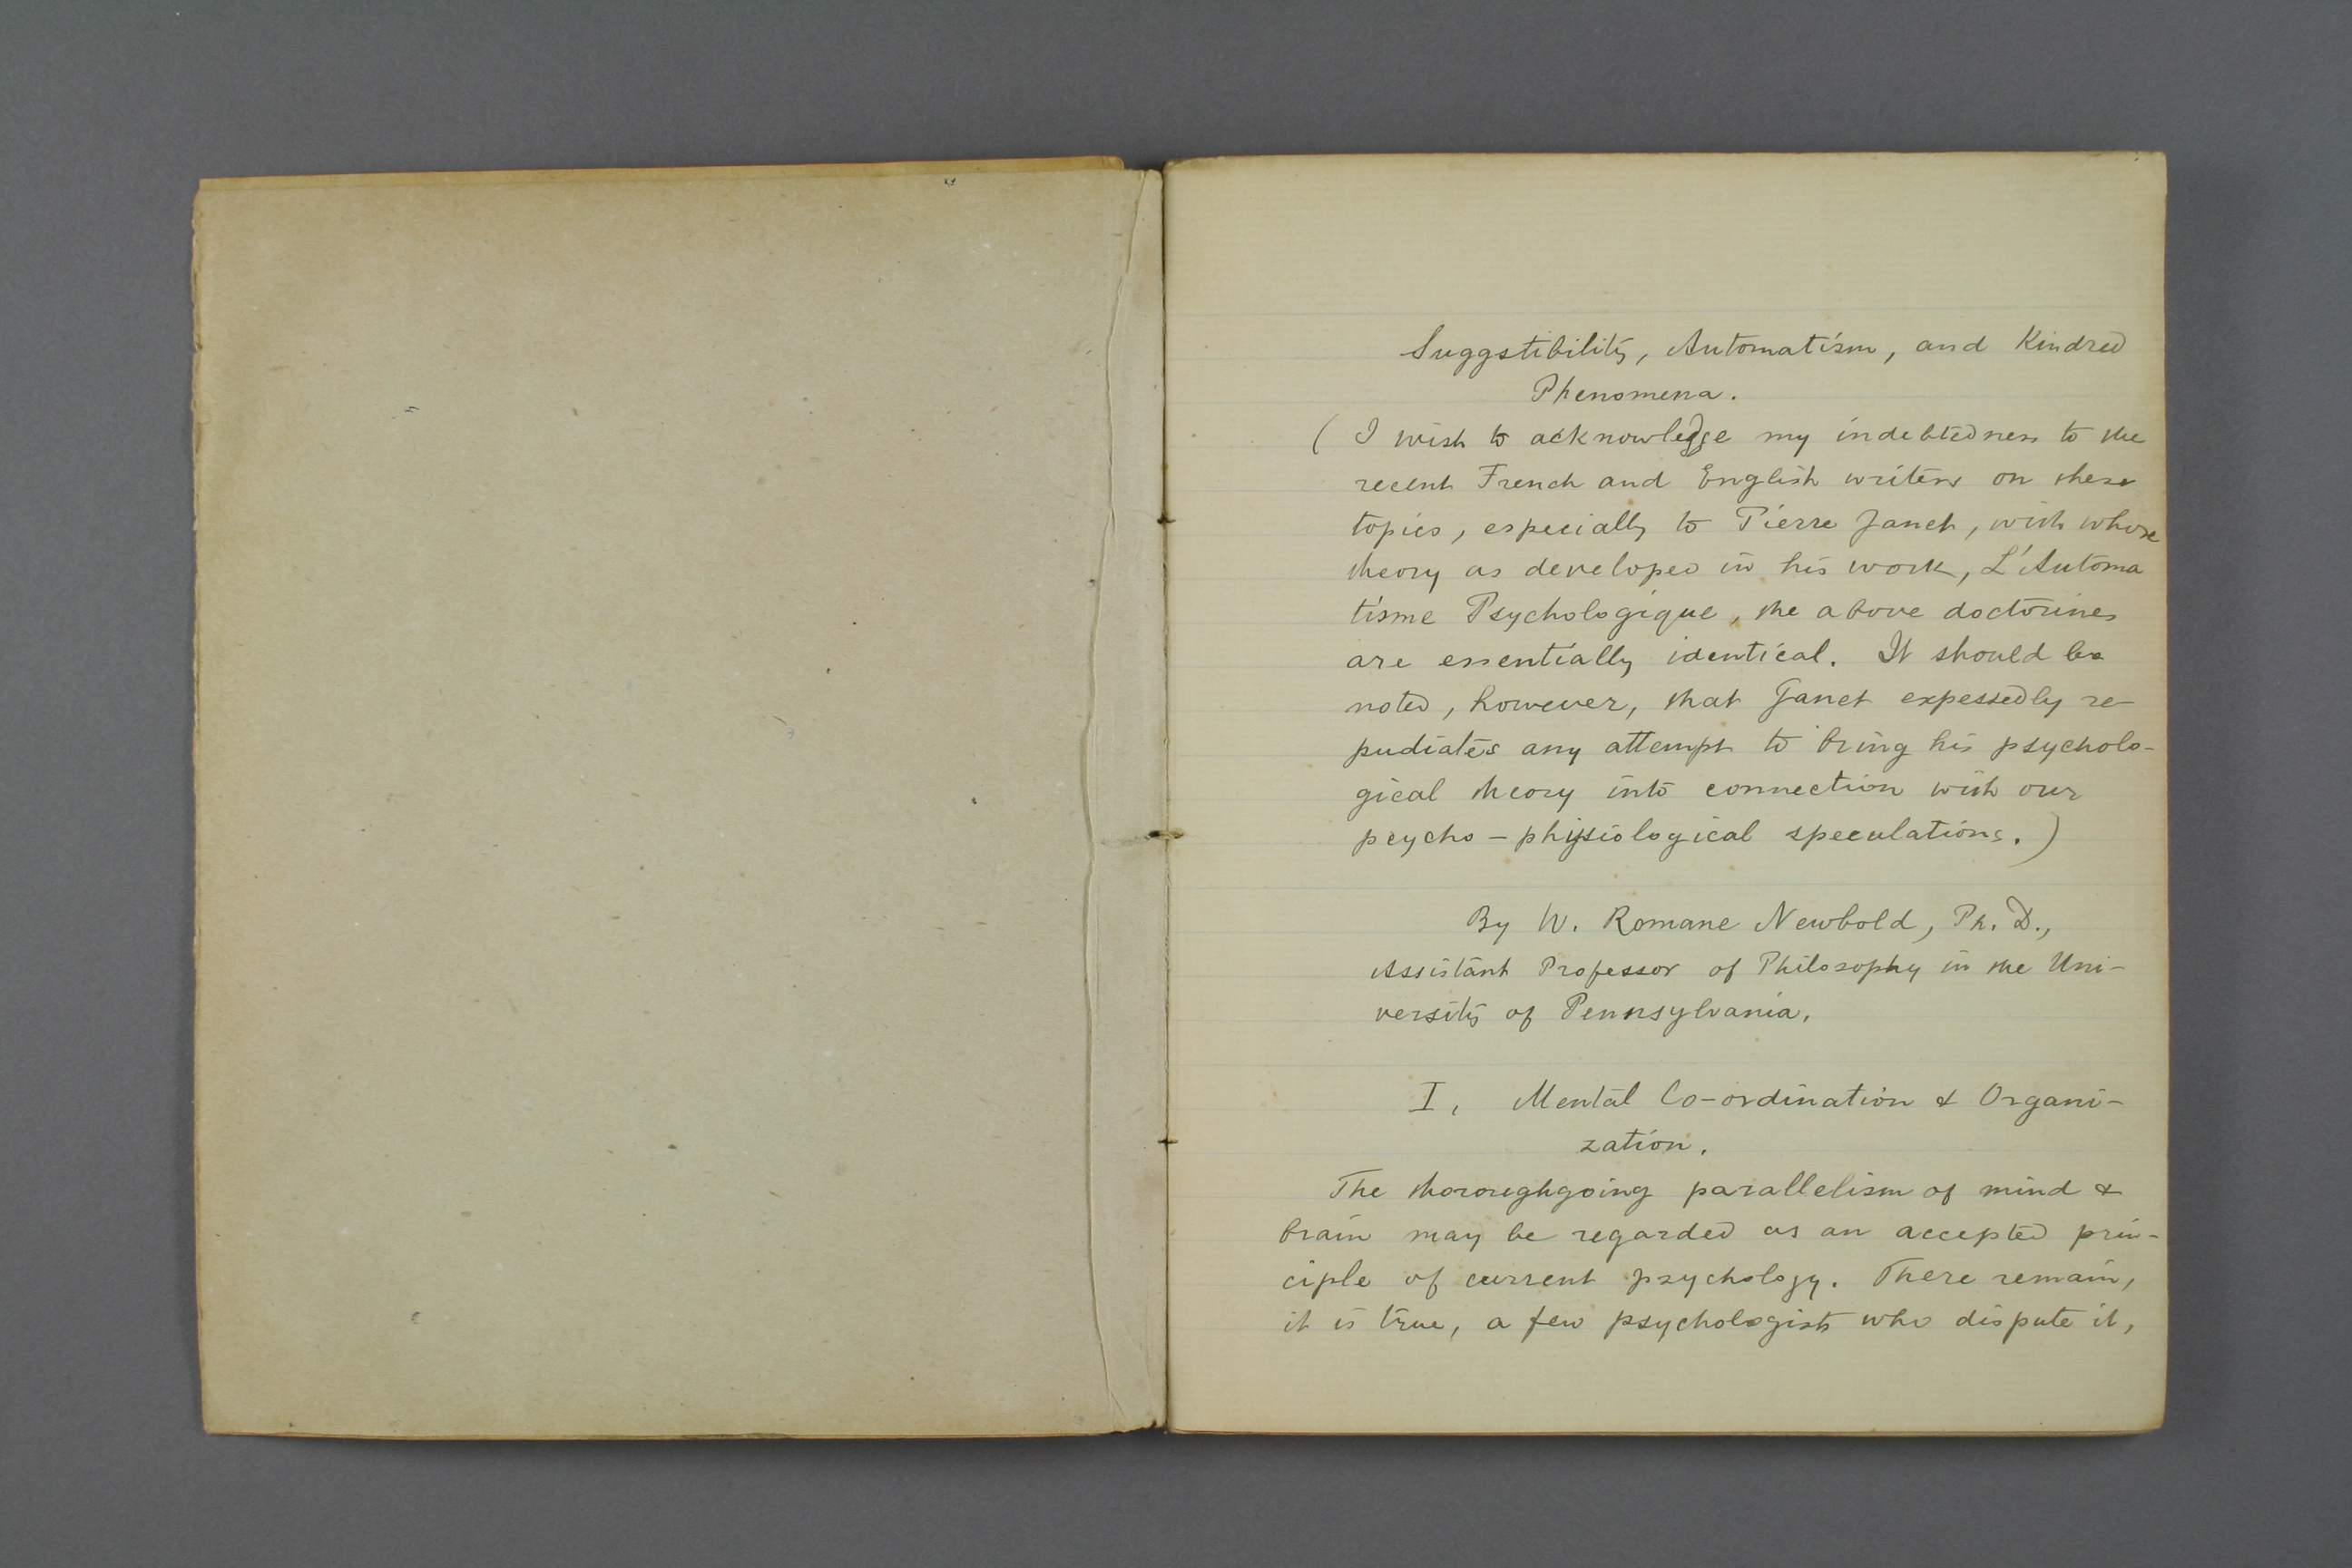 Suggstibility, Automatism, and Kindred
Phenomena.
( I wish to acknowledge my indebtedness to the
recent French and English writers on these
topics, especially to Pierre Janet, with whose
theory as developed in his work, L'Automa
tisme Psychologique, the above doctorines
are essentially identical. It should be
noted, however, that Janet expessedly re-
pudiates any attempt to bring his psycholo-
gical theory into connection with our
psycho-physiological speculations. )
By W. Romane Newbold, Ph. D.,
Assistant Professor of Philosophy in the Uni-
versity of Pennsylvania.
I, Mental Co-ordination & Organi-
zation.
The thoroughgoing parallelism of mind &
brain may be regarded as an accepted prin-
ciple of current psychology. There remain,
it is true, a few psychologists who dispute it,